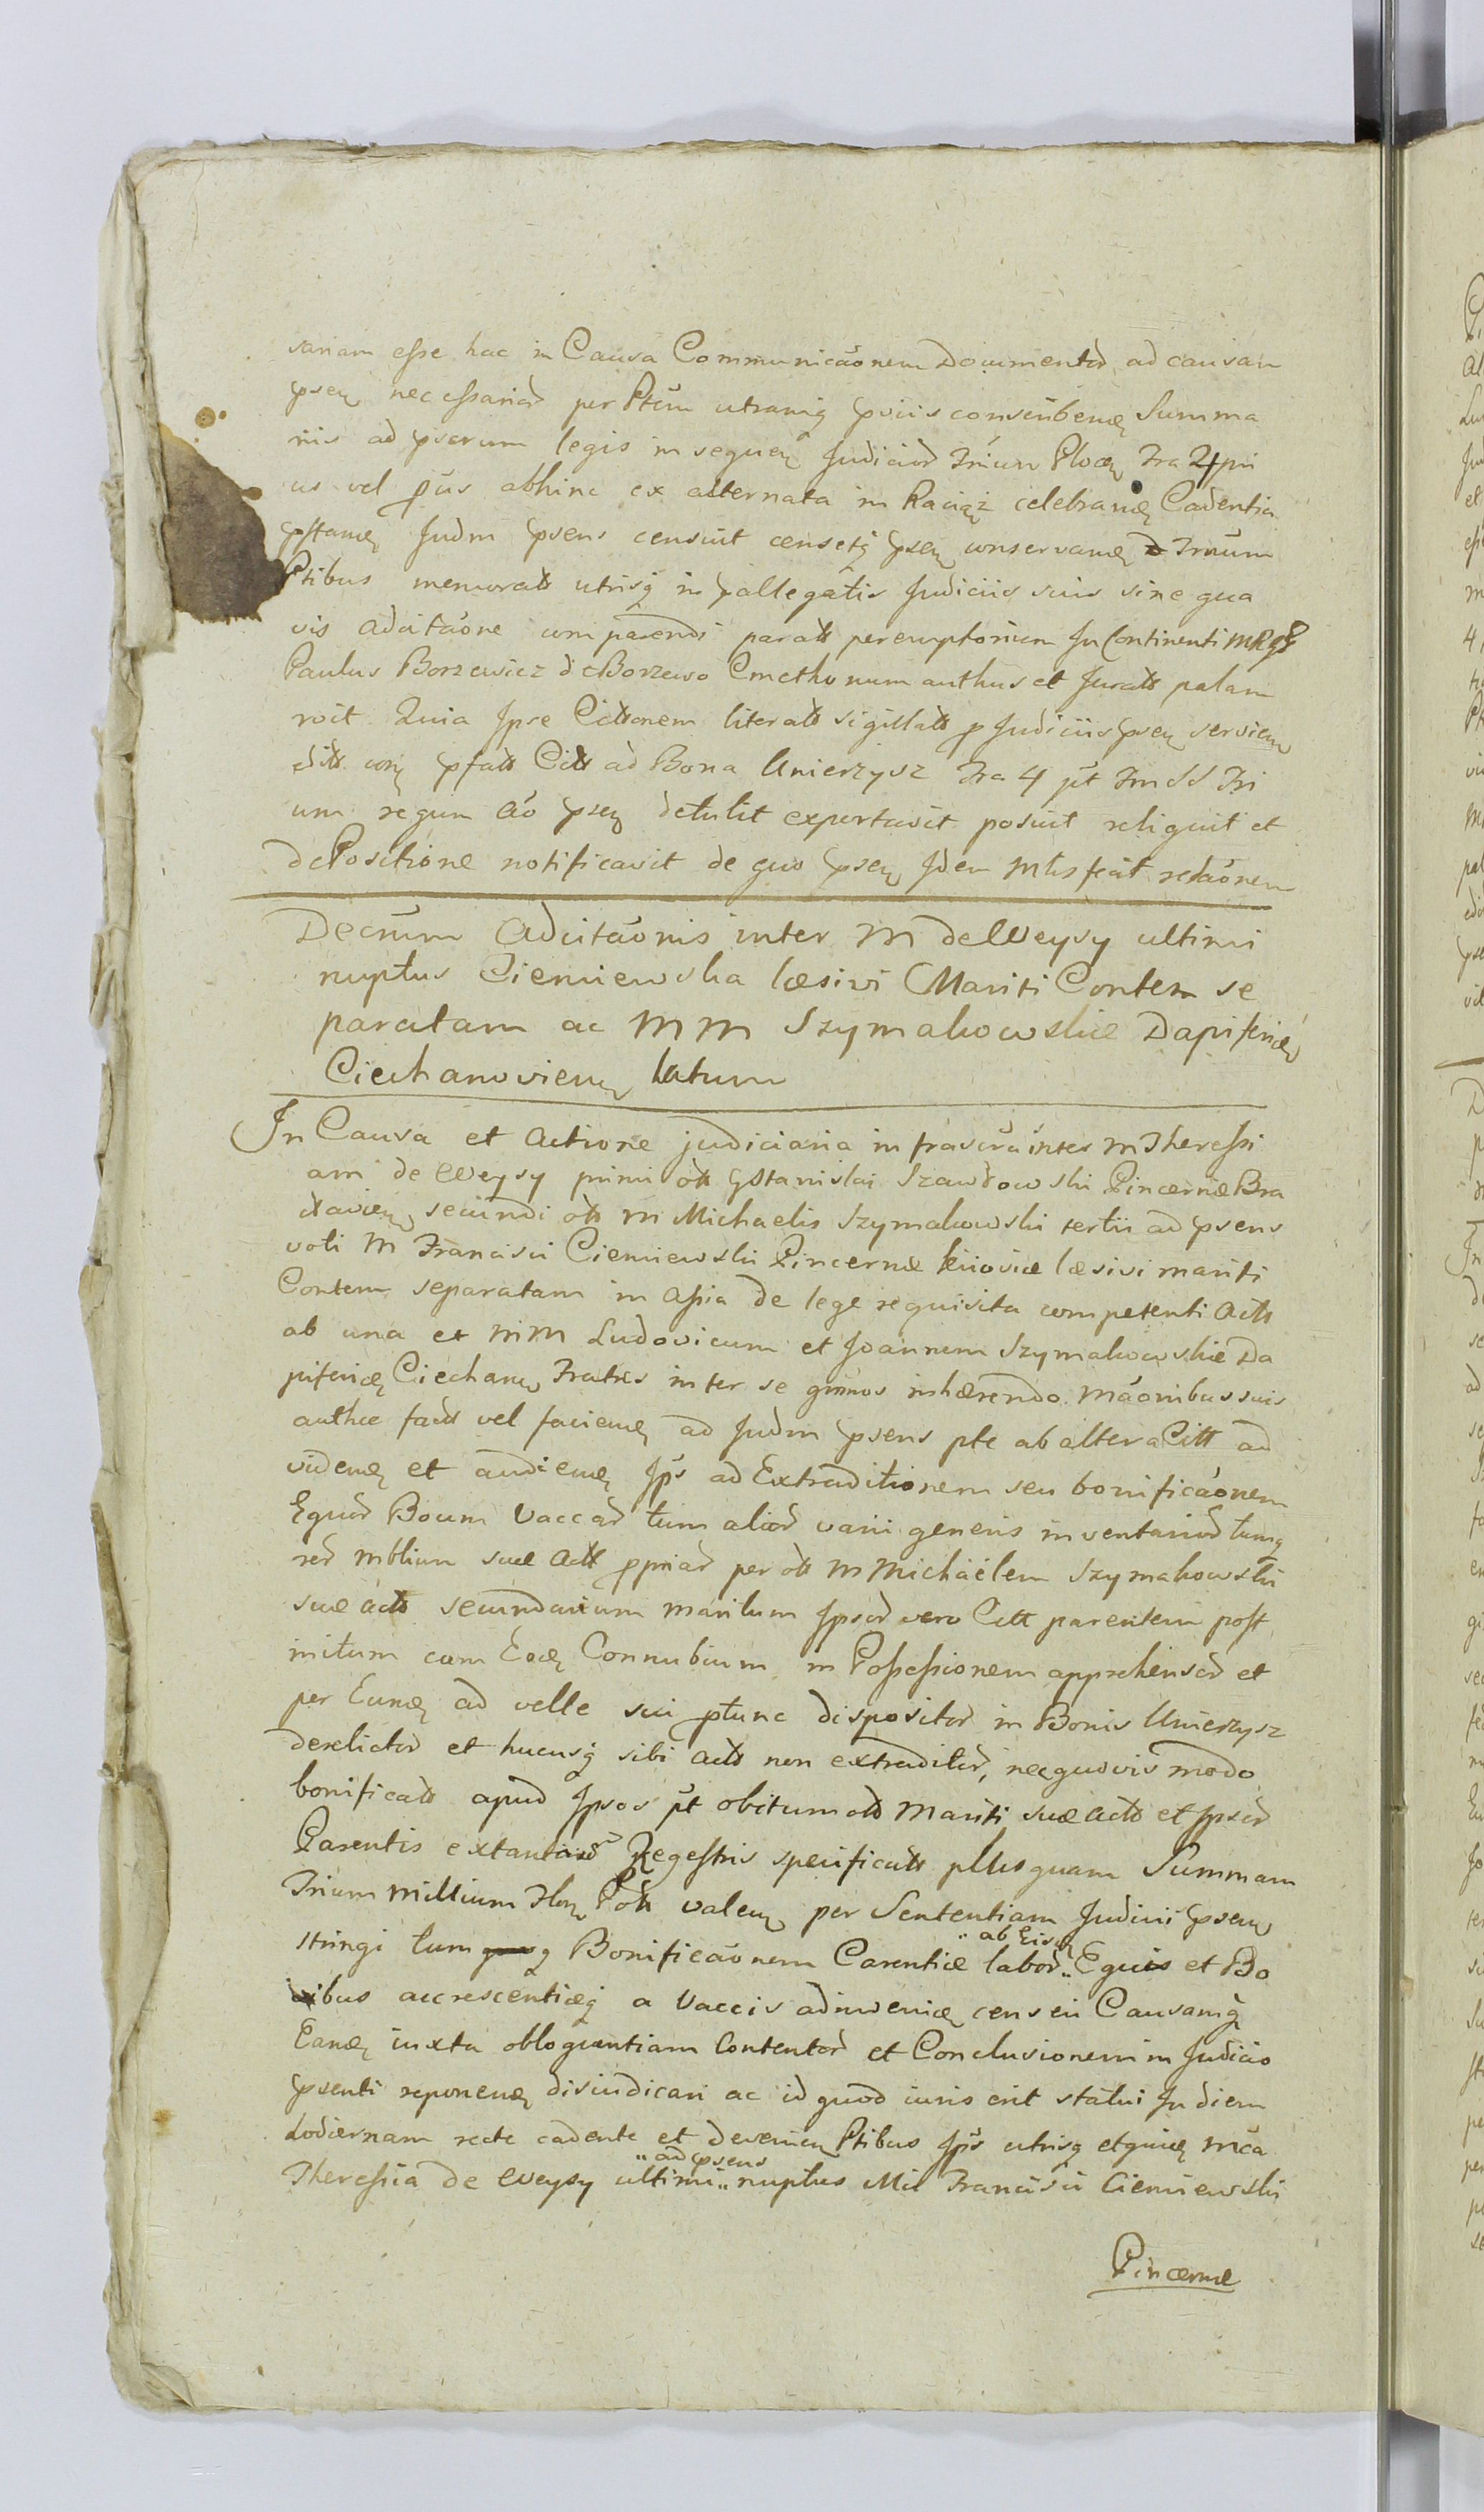 sariam esse hac in Causa Communicaonem Documentor ad causam
pseu necessarior per Ptem utramq psciis conscribenu Summa
riis ad pserum legis in seguen Judicior Trium Plocu Fra 4 pri
us vel prius abhinc ex alternata in Raciąż celebranu Cadentia
pstanu Judm psens censuit censetq pseu conservanu Trnum
Ptibus memorats utrisq in pallegatis Judiciis suis sine qua
vis adcitaone comparendi parats peremptorium In Continenti
Paulus Borzewicz de Borzewo Cmethonum authus et Jurats palam
voit Quia Ipse Citaonem literats sigillats p Judiciis pseu servien
edits corq pfats Cits ad Bona Unierzysz Fra 4 pt Fm SS Tri
um regum ao pseu detulit exportavit posuit reliquit et
de Positione notificavit de quo pseu Idem Mtsfecit relaonem
Decrum Adcitaonis inter M de Weysy ultimi
nuptus Cieniewska læsivi Mariti Contem se
paratam ac MM Szymakowskie Dapifericu
Ciechanovienu latum
In Causa et Actione judiciaria infrascra inter M Theressi
am de Weysy primi ott G Stanislai Szawłowski Pincernæ Bra
clavien secundi ott M Michaelis Szymakowski tertii ad psens
voti M Francisci Cieniewski Pincernæ Kiioviæ læsivi mariti
Contem separatam in assia de lege requisita competenti Acts
ab una et MM Ludovicum et Joannem Szymakowskie Da
pifericu Ciechanu Fratres inter se gnnos inhærendo Maonibus suis
authce facts vel facienu ad Judm psens pte ab altera Citt ad
videnu et audienu Ips ad Extraditionem seu bonificaonem
Equor Boum Vaccar tum alior varii generis inventarior tumq
rer mblium suæ Actt ppriar per ott M Michaëlem Szymakowski
suæ acts secundarium maritum Ipsor vero Citt parentem post
initum cum Eadu Connubium in Possessionem apprehensor et
per Eundu ad velle sui ptunc dispositor in Bonis Unierzysz
derelictor et hucusq sibi acts non extraditor, necquovis modo
bonificats apud Ipsos pt obitum ott Mariti suæ acts et Ipsor
Parentis extantior Regestris specificats plus quam Summam
Trium millium Flor Poll valeu per Sententiam Judicii pseu
stringi tum q Bonificaonem Carentiæ labor „ab Eisdu„ Equis et Bo
vibus accrescentiæq a Vaccis adinvenicu censeri Causamq
Eandu iuxta obloquentiam Contentor et Conclusionem in Judicio
psenti reponenu disiudicari ac id quod iuris erit statui In diem
hodiernam recte cadente et devenien Ptibus Ips utrisq etquidu Mca
Theressia de Weysy ultimi „ad psens„ nuptus Mil Francisci Cieniewski
Pincernæ